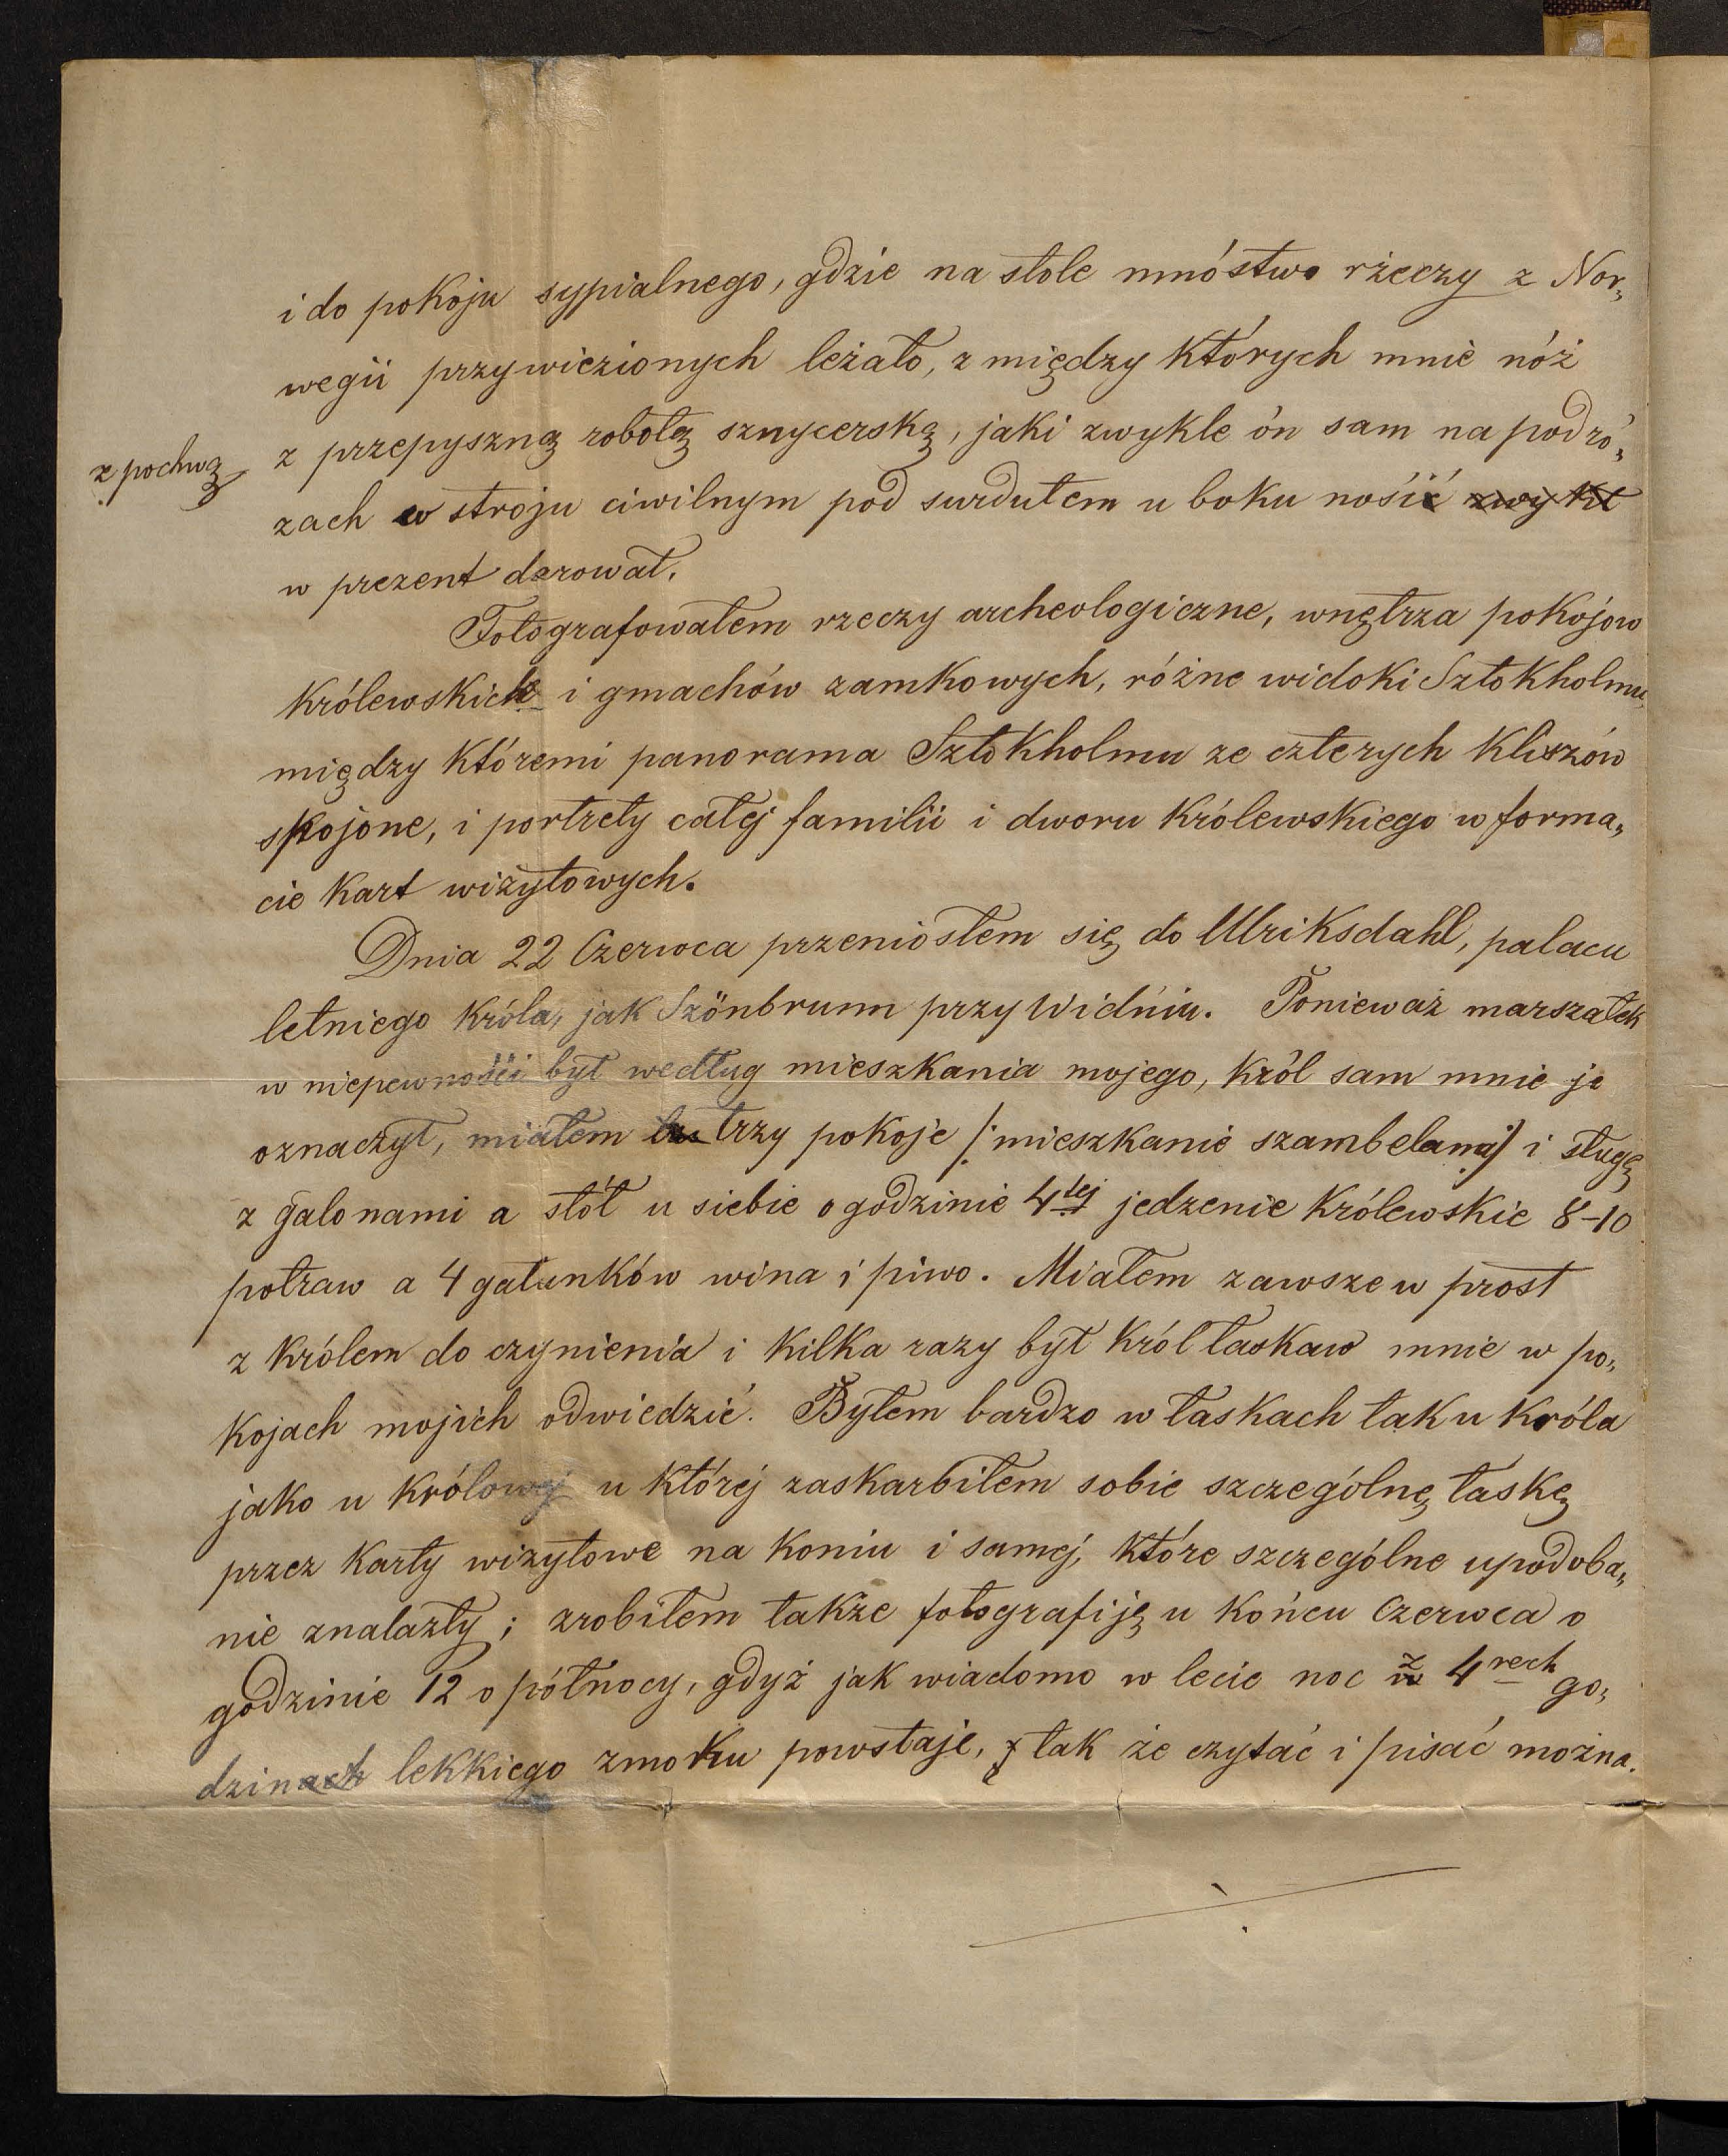 i do pokoju sypialnego, gdzie na stole mnóstwo rzeczy z Nor„
wegii przywiezionych leżało, z między których mnie nóż
z pochwą
z przepyszną robotą sznycerską, jaki zwykle ón sam na podró„
zach w stroju ciwilnym pod surdutem u boku nosić zwykł
w prezent darował.
Fotografowałem rzeczy archeologiczne, wnętrza pokojow
królewskich i gmachów zamkowych, różne widoki Sztokholmu,
między któremi panorama Sztokholmu ze czterych kliszów
spojone, i portrety całej familii i dworu królewskiego w forma„
cie kart wizytowych.
Dnia 22 Czerwca przeniosłem się do Ulriksdahl, palacu
letniego króla, jak Szönbrunn przy Widniu. Ponieważ marszałek
w niepewności był według mieszkania mojego, król sam mnie je
oznaczył, miałem trzy pokoje /: mieszkanie szambelana :/ i sługę
z galonami a stół u siebie o godzinie 4tej jedzenie królewskie 8-10
potraw a 4 gatunków wina i piwo. Miałem zawsze w prost
z królem do czynienia i kilka razy był król łaskaw mnie w po„
kojach mojich odwiedzić. Byłem bardzo w łaskach tak u króla
jako u królowej u której zaskarbiłem sobie szczególnę łaskę
przez karty wizytowe na koniu i samej, które szczególne upodoba„
nie znalazły; zrobiłem także fotografiję u końcu Czerwca o
godzinie 12 o północy, gdyż jak wiadomo w lecie noc z 4rech go„
dzinach lekkiego zmroku powstaje, tak że czytać i pisać można.